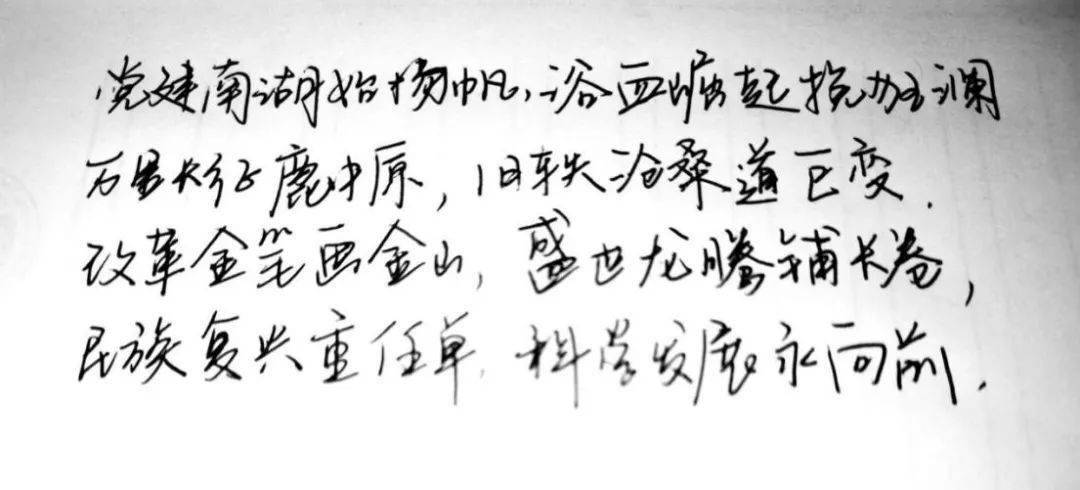 党建南湖始扬帆,浴血崛起挽狂澜
万里长征鹿中原,旧轶沧桑道已变.
改革金笔画金山,盛世龙腾铺长卷,
民族复兴重任单.科学发展永向前.